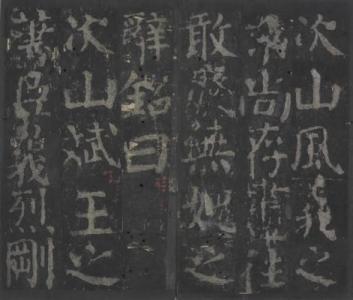 次山風義之
末尚存蕢往
敢廢無媿之
辭銘曰
次山斌王之
藎臣義烈剛